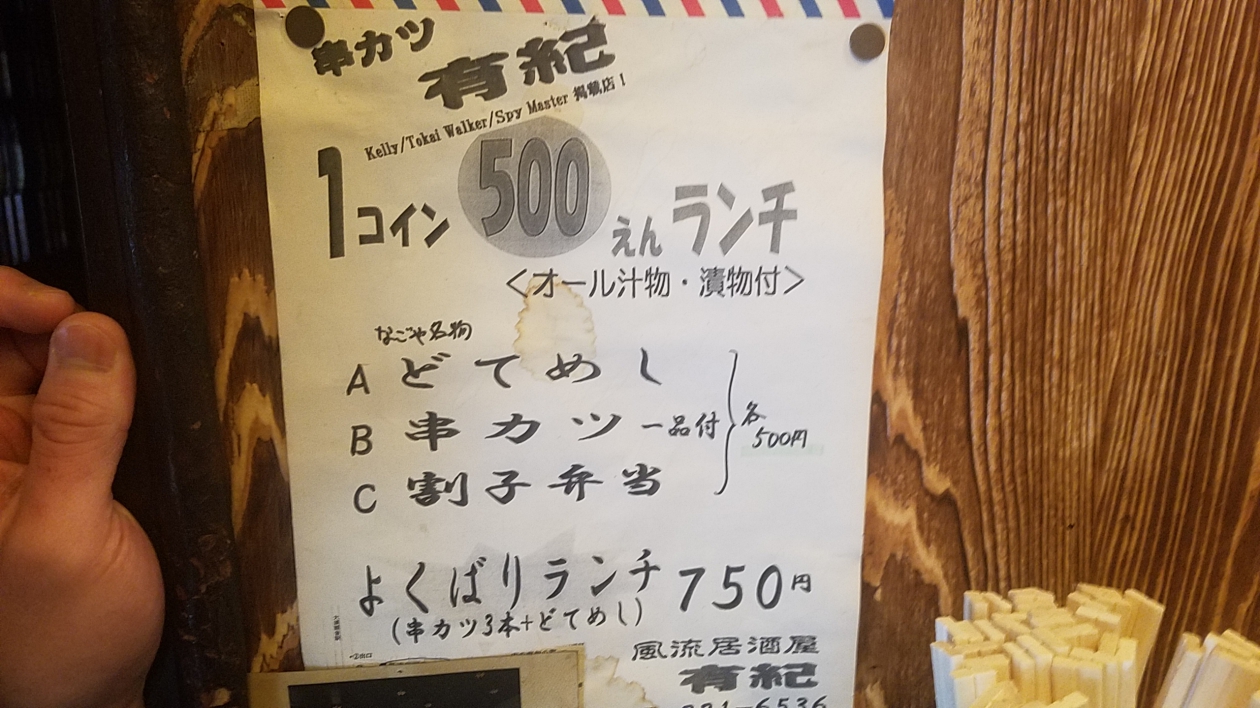 串カツ
有紀
Kelly/Tokai Walker/Spy Master 掲載店！
1コイン 500 えんランチ
＜オール汁物・漬物付＞
なごや名物
A どてめし
B 串カツ一品付
C 割子弁当
各500円
よくばりランチ 750円
(串カツ3本+どてめし)
風流居酒屋
有紀